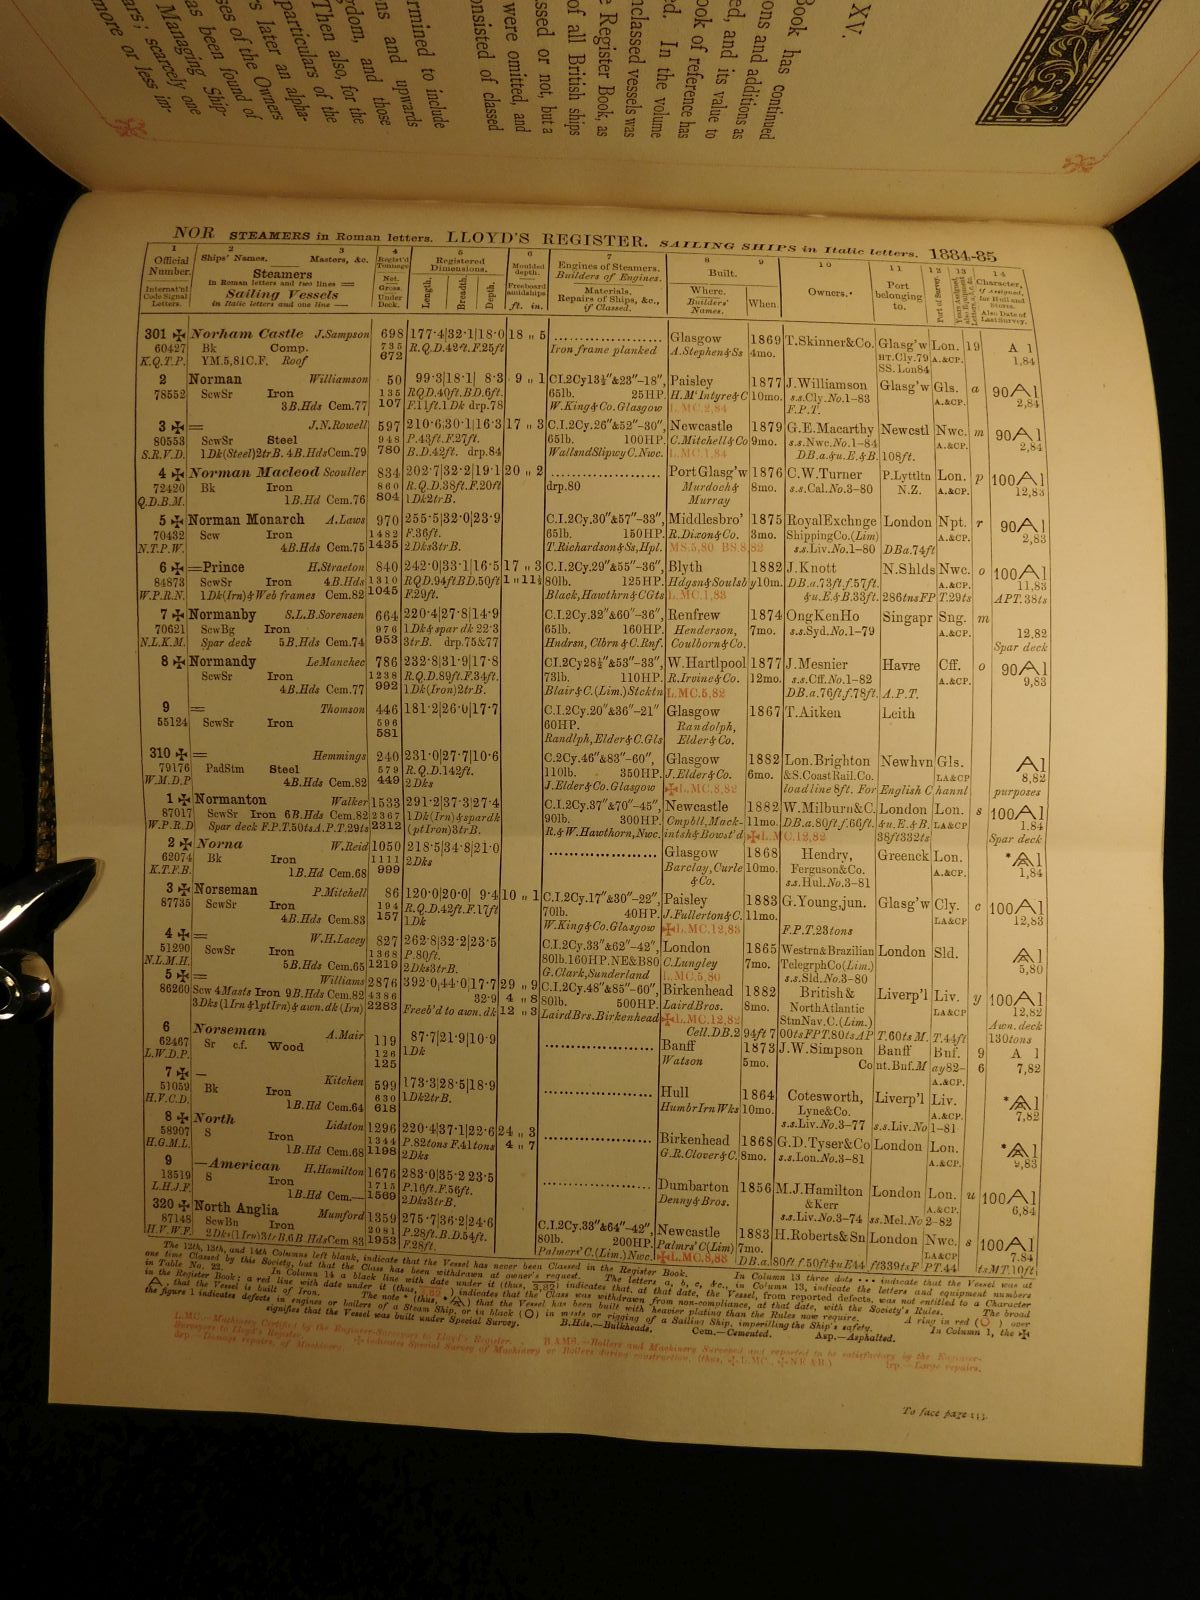 XV.
Book has continued
ons and additions as
ed, and its value to
ook of reference has
ed. In the volume
nclassed vessels was
e Register Book, as
of all British ships
ssed or not, but a
were omitted, and
onsisted of classed
rmined to include
ns and upwards
gdom, and those
Then also, for the
particulars of the
rs later an alpha-
ses of the Owners
as been found of
Managing Ship-
ars; scarcely one
more or less im-
NOR STEAMERS in Roman letters. LLOYD'S REGISTER. SAILING SHIPS in Italic letters. 1884-85
1 2 3 4 5 6 7 8 9 10 11 12 13 14
Official Number. Internat'nl Code Signal Letters.
Ships' Names. Masters, &c.
Steamers
in Roman letters and two lines =
Sailing Vessels
in Italic letters and one line —
Regist'd Tonnage Net. Gross. Under Deck.
Registered Dimensions. Length, Breadth, Depth.
Moulded depth. Freeboard amidships ft. in.
Engines of Steamers. Builders of Engines.
Materials. Repairs of Ships, &c., if Classed.
Built. Where. Builders' Names. When.
Owners.
Port belonging to.
Port of Survey.
Character, if Assigned, for Hull and Stores. Also Date of Last Survey.
301 ✠ Norham Castle J.Sampson 698 177·4 32·1 18·0 18 „ 5 .................... Glasgow 1869 T.Skinner&Co. Glasg'w Lon. 19 A 1
60427 Bk Comp. 735 R.Q.D.42ft.F.25ft Iron frame planked A.Stephen&Ss 4mo. HT.Cly.79 A.&CP. 1,84
K.Q.T.P. YM.5,81C.F. Roof 672 SS.Lon84
2 Norman Williamson 50 99·3 18·1 8·3 9 „ 1 C.I.2Cy13½"&23"–18", Paisley 1877 J.Williamson Glasg'w Gls. a 90A1
78552 ScwSr Iron 135 RQD.40ft.BD.6ft. 65lb. 25HP. H.McIntyre&C 10mo. s.s.Cly.No.1–83 A.&CP. 2,84
3B.Hds Cem.77 107 F.11ft.1Dk drp.78 W.King&Co.Glasgow L.MC.2,84 F.P.T.
3 ✠ = J.N.Rowell 597 210·6 30·1 16·3 17 „ 3 C.I.2Cy.26"&52"–30", Newcastle 1879 G.E.Macarthy Newcstl Nwc. m 90A1
80553 ScwSr Steel 948 P.43ft.F.27ft. 65lb. 100HP. C.Mitchell&Co 9mo. s.s.Nwc.No.1–84 A.&CP. 2,84
S.R.V.D. 1Dk(Steel)2trB. 4B.HdsCem.79 780 B.D.42ft. drp.84 WallsndSlipwyC.Nwc. L.MC.1,84 DB.a.&u.E.&B. 108ft.
4 ✠ Norman Macleod Scouller 834 202·7 32·2 19·1 20 „ 2 .................... PortGlasg'w 1876 C.W.Turner P.Lyttltn Lon. p 100A1
72420 Bk Iron 860 R.Q.D.38ft.F.20ft drp.80 Murdoch& 8mo. s.s.Cal.No.3–80 N.Z. A.&CP. 12,83
Q.D.B.M. 1B.Hd Cem.76 804 1Dk2trB. Murray
5 ✠ Norman Monarch A.Laws 970 255·5 32·0 23·9 C.I.2Cy,30"&57"–33", Middlesbro' 1875 RoyalExchnge London Npt. r 90A1
70432 Scw Iron 1482 F.36ft. 65lb. 150HP. R.Dixon&Co. 3mo. ShippingCo.(Lim) A.&CP. 2,83
N.T.P.W. 4B.Hds Cem.75 1435 2Dks3trB. T.Richardson&Ss,Hpl. MS.5,80 BS.8,82 s.s.Liv.No.1–80 DBa.74ft
6 ✠ =Prince H.Straeton 840 242·0 33·1 16·5 17 „ 3 C.I.2Cy.29"&55"–36", Blyth 1882 J.Knott N.Shlds Nwc. o 100A1
84873 ScwSr Iron 4B.Hds 1310 RQD.94ftBD.50ft 1 „ 11½ 80lb. 125HP. Hdgsn&Soulsby 10m. DB.a.73ft.f.57ft. A.&CP. 11,83
W.P.R.N. 1Dk(Irn)&Web frames Cem.82 1045 F.29ft. Black,Hawthrn&CGts L.MC.1,83 &u.E.&B.33ft. 286tnsFP T.29ts APT.38ts
7 ✠ Normanby S.L.B.Sorensen 664 220·4 27·8 14·9 C.I.2Cy,32"&60"–36", Renfrew 1874 OngKenHo Singapr Sng. m
70621 ScwBg Iron 976 1Dk&spar dk 22·3 65lb. 160HP. Henderson, 7mo. s.s.Syd.No.1–79 A.&CP. 12,82
N.L.K.M. Spar deck 5B.Hds Cem.74 953 3trB. drp.75&77 Hndrsn, Clbrn & C.Rnf. Coulborn&Co. Spar deck
8 ✠ Normandy LeManchec 786 232·8 31·9 17·8 C.I.2Cy28½"&53"–33", W.Hartlpool 1877 J.Mesnier Havre Cff. o 90A1
ScwSr Iron 1238 R.Q.D.89ft.F.34ft. 73lb. 110HP. R.Irvine&Co. 12mo. s.s.Cff.No.1–82 A.&CP. 9,83
4B.Hds Cem.77 992 1Dk(Iron)2trB. Blair&C.(Lim.)Stcktn L.MC.5,82 DB.a.76ftf.78ft. A.P.T.
9 = Thomson 446 181·2 26·0 17·7 C.I.2Cy.20"&36"–21" Glasgow 1867 T.Aitken Leith
55124 ScwSr Iron 596 60HP. Randolph,
581 Randlph,Elder&C.Gls Elder&Co.
310 ✠ = Hemmings 240 231·0 27·7 10·6 C.2Cy.46"&83"–60", Glasgow 1882 Lon.Brighton Newhvn Gls. A1
79176 PadStm Steel 579 R.Q.D.142ft. 110lb. 350HP. J.Elder&Co. 6mo. &S.CoastRail.Co. LA&CP 8,82
W.M.D.P 4B.Hds Cem.82 449 2Dks J.Elder&Co.Glasgow ✠L.MC.8,82 loadline 8ft. For English Channl purposes
1 ✠ Normanton Walker 1533 291·2 37·3 27·4 C.I.2Cy.37"&70"–45", Newcastle 1882 W.Milburn&C. London Lon. s 100A1
87017 ScwSr Iron 6B.Hds Cem.82 2367 1Dk(Irn)&spardk 90lb. 300HP. Cmpbll,Mack- 11mo. DB.a.80ft.f.66ft. &u.E.&B. LA&CP 1.84
W.P.R.D Spar deck F.P.T.50tsA.P.T.29ts 2312 (ptIron)3trB. R.&W.Hawthorn,Nwc. intsh&Bowst'd ✠L.MC.12,82 38ft332ts Spar deck
2 ✠ Norna W.Reid 1050 218·5 34·8 21·0 .................... Glasgow 1868 Hendry, Greenck Lon. *A1
62074 Bk Iron 1111 2Dks Barclay,Curle 10mo. Ferguson&Co. A.&CP. 1,84
K.T.F.B. 1B.Hd Cem.68 999 &Co. s.s.Hul.No.3–81
3 ✠ Norseman P.Mitchell 86 120·0 20·0 9·4 10 „ 1 C.I.2Cy.17"&30"–22", Paisley 1883 G.Young,jun. Glasg'w Cly. c 100A1
87735 ScwSr Iron 194 R.Q.D.42ft.F.17ft 70lb. 40HP. J.Fullerton&C. 11mo. LA&CP 12,83
4B.Hd Cem.83 157 1Dk W.King&Co.Glasgow ✠L.MC.12,83 F.P.T.23tons
4 ✠ = W.H.Lacey 827 262·8 32·2 23·5 C.I.2Cy.33"&62"–42", London 1865 Westrn&Brazilian London Sld. A1
51290 ScwSr Iron 1368 P.80ft. 80lb.160HP.NE&B80 C.Lungley 7mo. TelegrphCo(Lim.) 5,80
N.L.M.H. 5B.Hds Cem.65 1219 2Dks3trB. G.Clark,Sunderland L.MC.5,80 s.s.Sld.No.3–80
5 ✠ = Williams 2876 392·0 44·0 17·7 29 „ 9 C.I.2Cy.48"&85"–60", Birkenhead 1882 British& Liverp'l Liv. y 100A1
86260 Scw 4Masts Iron 9B.Hds Cem.82 4386 32·9 4 „ 8 80lb. 500HP. LairdBros. 8mo. NorthAtlantic LA&CP 12,82
3Dks(1Irn&1ptIrn)& awn.dk(Irn) 2283 Freeb'd to awn.dk 12 „ 3 LairdBrs.Birkenhead ✠L.MC.12,82 StmNav.C.(Lim.) Awn.deck
Cell.DB.2 94ft 7 00tsFPT.80tsAP T.60ts M. T.44ft 130tons
6 Norseman A.Mair 119 87·7 21·9 10·9 .................... Banff 1873 J.W.Simpson Banff Bnf. 9 A 1
62467 Sr c.f. Wood 126 1Dk Watson 5mo. Cont.Bnf.May82– 6 7,82
L.W.D.P. 125 A.&CP.
7 ✠ — Kitchen 599 173·3 28·5 18·9 .................... Hull 1864 Cotesworth, Liverp'l Liv. *A1
51059 Bk Iron 630 1Dk2trB. HumbrIrnWks 10mo. Lyne&Co. A.&CP. 7,82
H.V.C.D. 1B.Hd Cem.64 618 s.s.Liv.No.3–77 s.s.Liv.No 1–81
8 ✠ North Lidston 1296 220·4 37·1 22·6 24 „ 3 .................... Birkenhead 1868 G.D.Tyser&Co London Lon. *A1
58907 S Iron 1344 P.82tons F.41tons 4 „ 7 G.R.Clover&C. 8mo. s.s.Lon.No.3–81 A.&CP. 2,83
H.G.M.L. 1B.Hd Cem.68 1198 2Dks
9 —American H.Hamilton 1676 283·0 35·2 23·5 .................... Dumbarton 1856 M.J.Hamilton London Lon. u 100A1
13519 S Iron 1715 P.16ft.F.56ft. Denny&Bros. &Kerr A.&CP. 6,84
L.H.J.F. 1B.Hd Cem.— 1569 2Dks3trB. s.s.Liv.No.3–74 ss.Mel.No 2–82
320 ✠ North Anglia Mumford 1359 275·7 36·2 24·6 C.I.2Cy.33"&64"–42", Newcastle 1883 H.Roberts&Sn London Nwc. s 100A1
87148 ScwBn Iron 2081 P.28ft.B.D.54ft. 80lb. 200HP. Palmrs'C(Lim) 7mo. LA&CP 7.84
H.V.W.F. 2Dks(1Irn)3trB.6B.HdsCem 83 1953 F.28ft. Palmers'C.(Lim.)Nwc. ✠L.MC.8,83 DB.a.80ft f.50ft&uE44 ft339tsF PT.44 tsMT.10ft
The 12th, 13th, and 14th Columns left blank, indicate that the Vessel has never been Classed in the Register Book. In Column 13 three dots ... indicate that the Vessel was at
one time Classed by this Society, but that the Class has been withdrawn at owner's request. The letters a, b, c, &c., in Column 13, indicate the letters and equipment numbers
in Table No. 22. In Column 14 a black line with date under it (thus, 3,82) indicates that, at that date, the Vessel, from reported defects, was not entitled to a Character
in the Register Book; a red line with date under it (thus, ) indicates that the Class was withdrawn from non-compliance, at that date, with the Society's Rules. The broad
A, that the Vessel is built of Iron. The note * (thus, *A) that the Vessel has been built with heavier plating than the Rules now require. A ring in red (O) over
the figure 1 indicates defects in engines or boilers of a Steam Ship, or in black (O) in masts or rigging of a Sailing Ship, imperilling the Ship's safety. In Column 1, the ✠
signifies that the Vessel was built under Special Survey. B.Hds.—Bulkheads. Cem.—Cemented. Asp.—Asphalted.
L.MC.—Machinery Certified by the Engineer-Surveyors to Lloyd's Register. B.&MS.—Boilers and Machinery Surveyed and reported to be satisfactory by the Engineer-
Surveyors to Lloyd's Register. ✠ indicates Special Survey of Machinery or Boilers during construction, (thus, ✠L.MC., ✠N.E.&B.) lrp.—Large repairs.
drp—Damage repairs, of Machinery.
To face page 113.